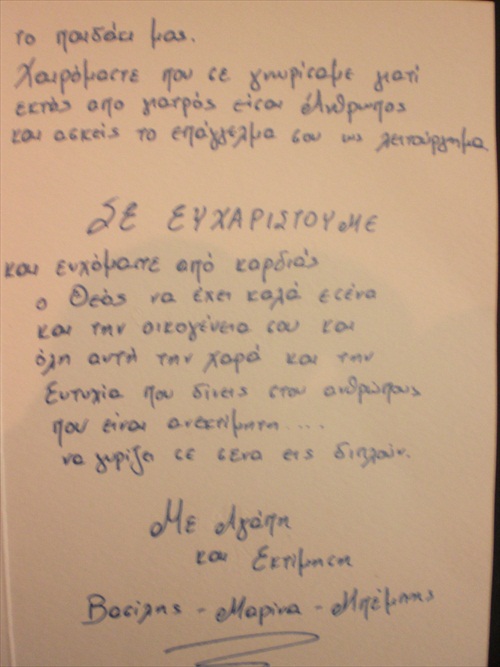 το παιδάκι μας.
Χαιρόμαστε που σε γνωρίσαμε γιατί
εκτός από γιατρός είσαι Άνθρωπος
και ασκείς το επάγγελμα σου ως λειτούργημα
ΣΕ ΕΥΧΑΡΙΣΤΟΥΜΕ
και ευχόμαστε από καρδιάς
ο Θεός να έχει καλά εσένα
και την οικογένεια σου και
όλη αυτή την χαρά και την
Ευτυχία που δίνεις στου ανθρώπους
που είναι ανεκτίμητη....
να γυρίζει σε σενα εις διπλούν.
Με Αγάπη
και Εκτίμηση
Βασίλης - Μαρίνα - Μπέμπης